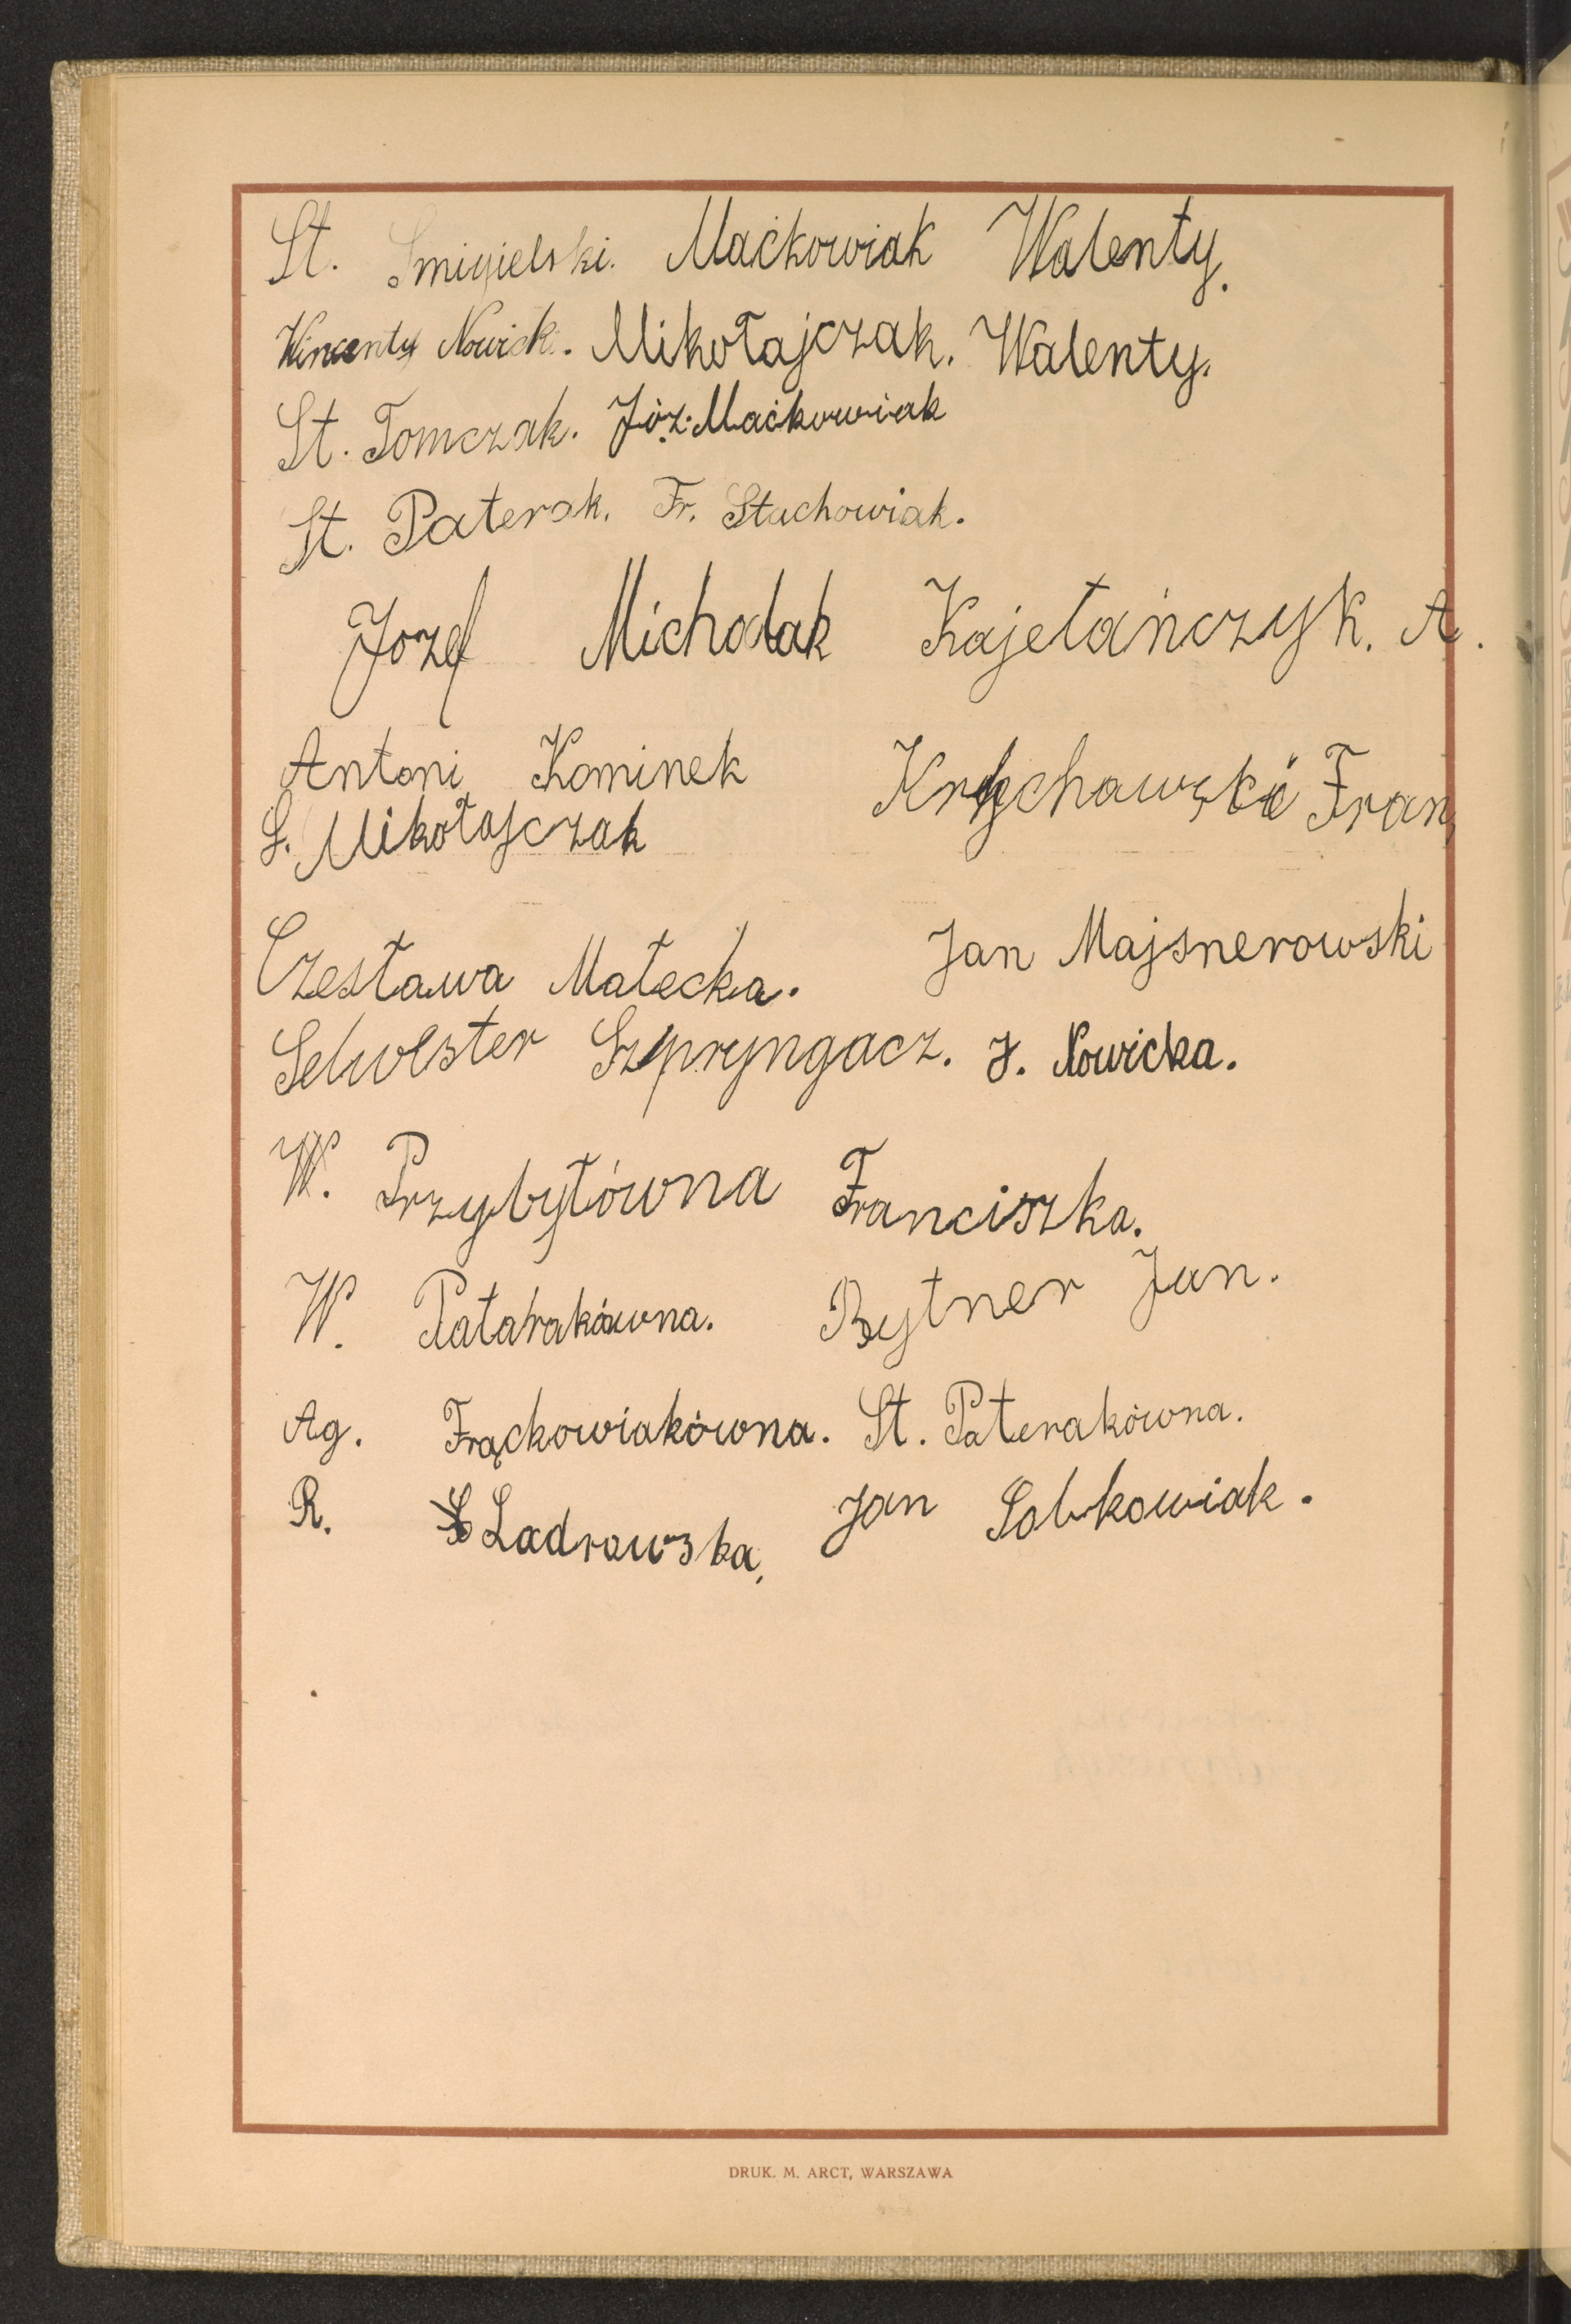 St. Smigielski. Maćkowiak Walenty.
Wincenty Nowicki. Mikołajczak. Walenty.
St. Tomczak. Józ. Maćkowiak
St. Paterak. Fr. Stachowiak.
Jozef Michalak Kajetańczyk. A.
Antoni Kominek Krychowski Fran,
S. Mikołajczak
Czesława Małecka. Jan Majsnerowski
Selwester Szpryngacz. J. Nowicka.
W. Przybyłówna Franciszka.
W. Patarakówna. Bytner Jan.
Ag. Frąckowiakówna. St. Paterakówna.
R. Ladrowska, Jan Sobkowiak.
DRUK. M. ARCT, WARSZAWA